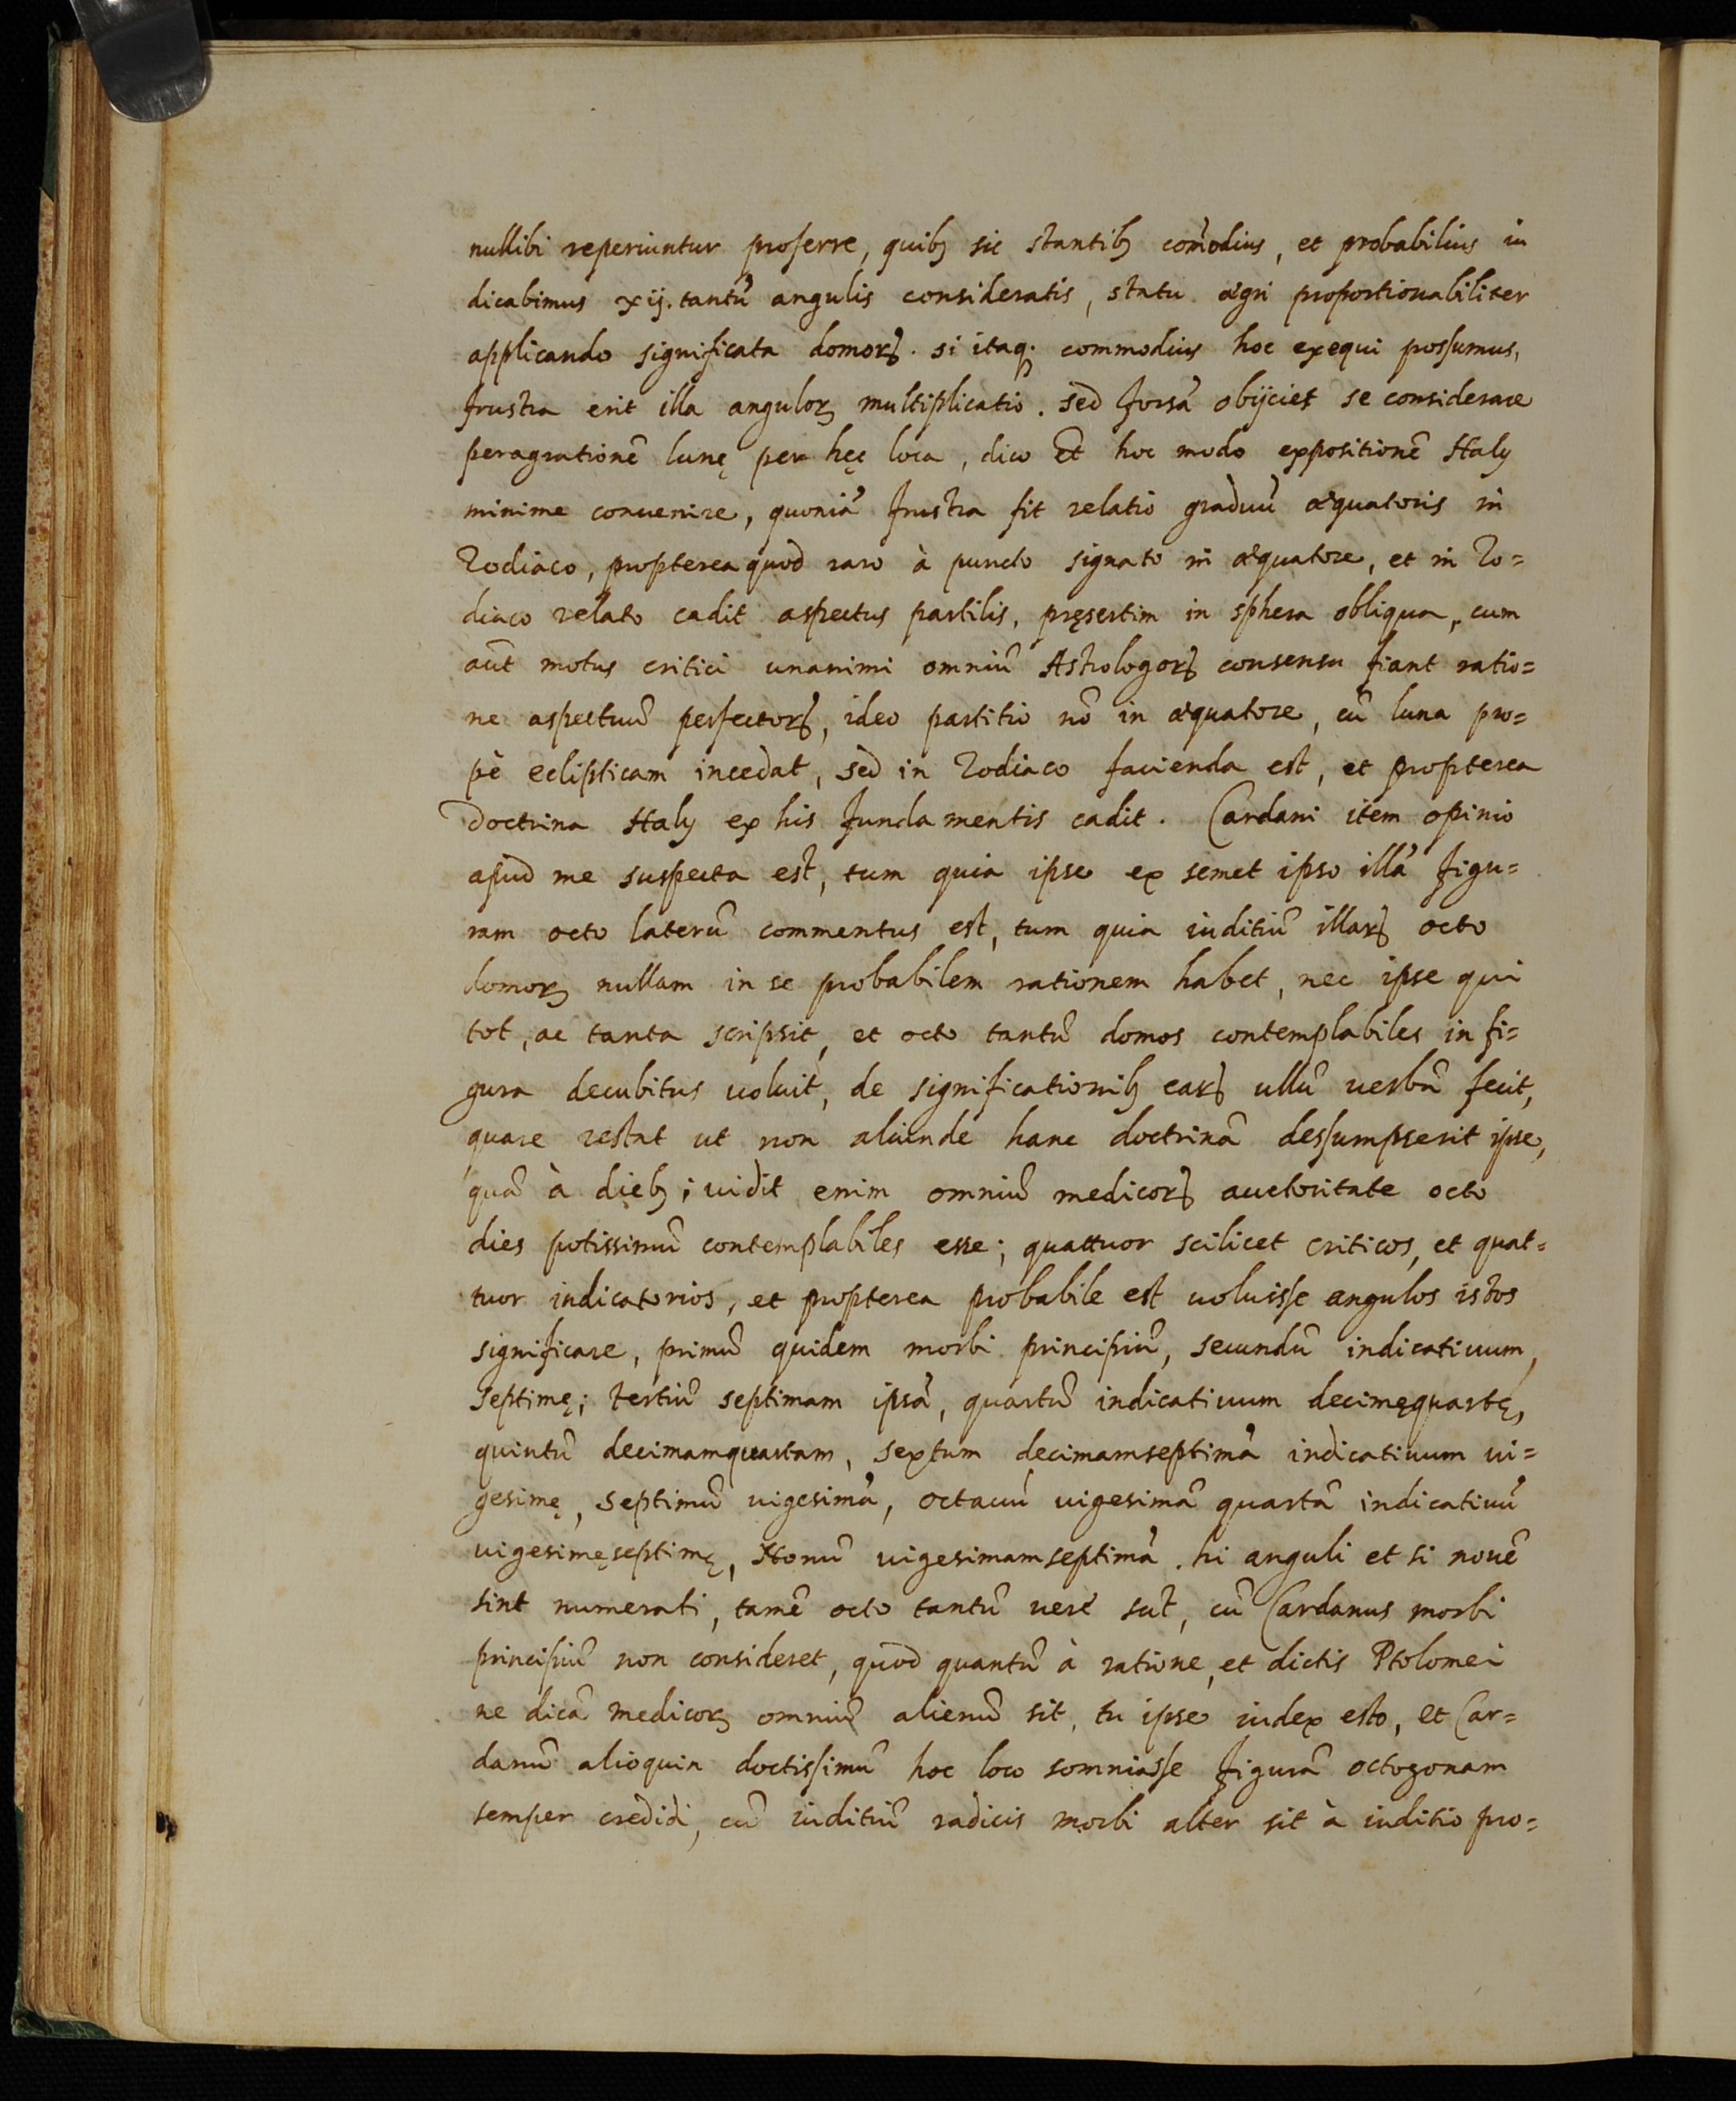 nullibi reperiuntur proferre, quibꝫ sic stantibꝫ com̃odius, et probabilius iu
dicabimus xij. tantũ angulis consideratis, statu ægri proportionabiliter
applicando significata domorꝫ. si itaqꝫ commodius hoc exequi possumus,
frustra erit illa angulorꝫ multiplicatio. sed forsã obijciet se considerare
peragrationẽ lunę per hęc loca, dico Et hoc modo expositionẽ Haly
minime conuenire, quoniã frustra fit relatio graduũ æquatoris in
Zodiaco, propterea quod raro à puncto signato in æquatore, et in Zo=
diaco relato cadit aspectus partilis, pręsertim in sphera obliqua, cum
aũt motus critici unanimi omniũ Astrologorꝫ consensu fiant ratio=
ne aspectuũ perfectorꝫ, ideo partitio nõ in æquatore, cũ luna pro=
pè eclipticam incedat, sed in Zodiaco facienda est, et propterea
doctrina Haly ex his fundamentis cadit. Cardani item opinio
apud me suspecta est, tum quia ipse ex semet ipso illã figu=
ram octo laterũ commentus est, tum quia iuditiũ illarꝫ octo
domorꝫ nullam in se probabilem rationem habet, nec ipse qui
tot, ac tanta scripsit, et octo tantũ domos contemplabiles in fi=
gura decubitus uoluit, de significationibꝫ earꝫ ullũ uerbũ fecit,
quare restat ut non aliunde hanc doctrinã dessumpserit ipse,
quã à diebꝫ; uidit enim omniũ medicorꝫ auctoritate octo
dies potissimũ contemplabiles esse; quattuor scilicet criticos, et quat=
tuor indicatorios, et propterea probabile est uoluisse angulos istos
significare, primũ quidem morbi principiũ, secundũ indicatiuum,
septimę; tertiũ septimam ipsã, quartũ indicatiuum decimęquartę,
quintũ decimamquartam, sextum decimamseptimã indicatiuum ui=
gesimę, septimũ uigesimã, octauũ uigesimã quartã indicatiuũ
uigesimęseptimę, Nonũ uigesimamseptimã. hi anguli et si nouẽ
sint numerati, tamẽ octo tantũ uerè sũt, cũ Cardanus morbi
principiũ non consideret, quod quantũ à ratione, et dictis Ptolomei
ne dicã medicorꝫ omniũ alienũ sit, tu ipse iudex esto, et Car=
danũ alioquin doctissimũ hoc loco somniasse figurã octogonam
semper credidi, cũ iuditiũ radicis morbi alter sit à iuditio pro=